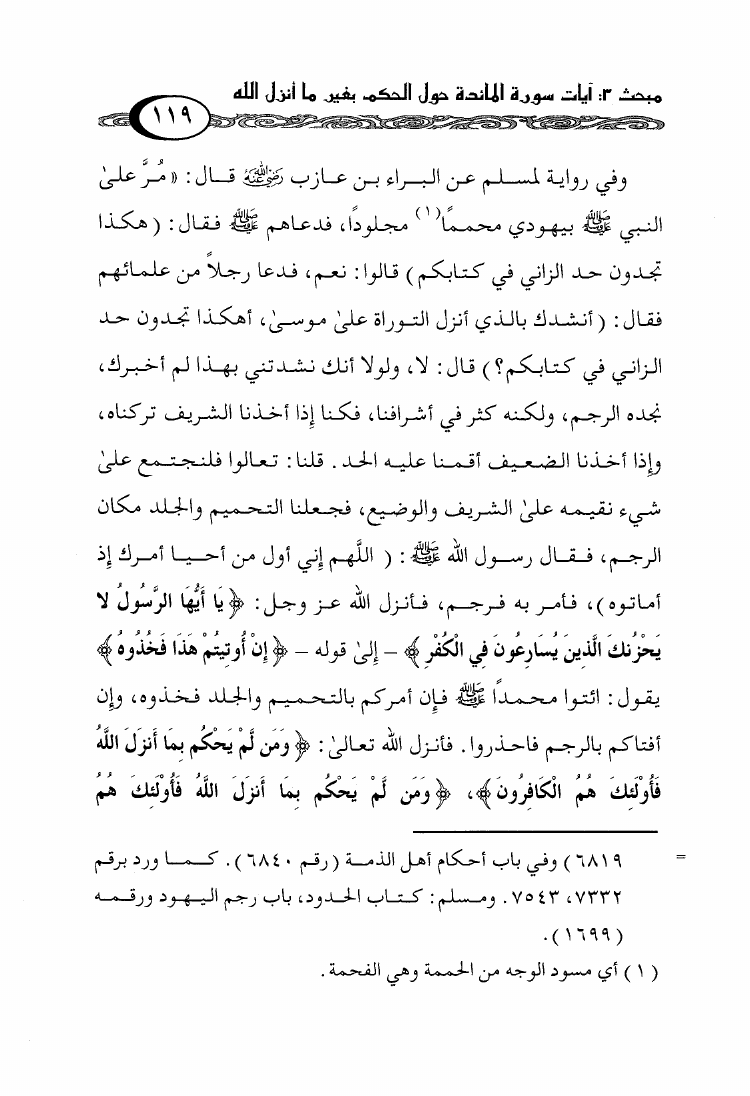 مبحث ٣: آيات سورة المائدة حول الحكم بغير ما أنزل الله
١١٩
وفي رواية لمسلم عن البراء بن عازب رضي الله عنه قال: «مُرَّ علىٰ
النبي ﷺ بيهودي محمماً(١) مجلوداً، فدعاهم ﷺ فقال: (هكذا
تجدون حد الزاني في كتابكم) قالوا: نعم، فدعا رجلاً من علمائهم
فقال: (أنشدك بالذي أنزل التوراة علىٰ موسىٰ، أهكذا تجدون حد
الزاني في كتابكم؟) قال: لا، ولولا أنك نشدتني بهذا لم أخبرك،
نجده الرجم، ولكنه كثر في أشرافنا، فكنا إذا أخذنا الشريف تركناه،
وإذا أخذنا الضعيف أقمنا عليه الحد. قلنا: تعالوا فلنجتمع علىٰ
شيء نقيمه علىٰ الشريف والوضيع، فجعلنا التحميم والجلد مكان
الرجم، فقال رسول الله ﷺ: (اللَّهم إني أول من أحيا أمرك إذ
أماتوه)، فأمر به فرجم، فأنزل الله عز وجل: ﴿يَا أَيُّهَا الرَّسُولُ لا
يَحْزُنكَ الَّذِينَ يُسَارِعُونَ فِي الْكُفْرِ﴾ – إلىٰ قوله – ﴿إِنْ أُوتِيتُمْ هَذَا فَخُذُوهُ﴾
يقول: ائتوا محمداً ﷺ فإن أمركم بالتحميم والجلد فخذوه، وإن
أفتاكم بالرجم فاحذروا. فأنزل الله تعالىٰ: ﴿وَمَن لَّمْ يَحْكُم بِمَا أَنزَلَ اللَّهُ
فَأُوْلَئِكَ هُمُ الْكَافِرُونَ﴾، ﴿وَمَن لَّمْ يَحْكُم بِمَا أَنزَلَ اللَّهُ فَأُوْلَئِكَ هُمُ
= ٦٨١٩) وفي باب أحكام أهل الذمة (رقم ٦٨٤٠). كما ورد برقم
٧٣٣٢، ٧٥٤٣. ومسلم: كتاب الحدود، باب رجم اليهود ورقمه
(١٦٩٩).
(١) أي مسود الوجه من الحممة وهي الفحمة.